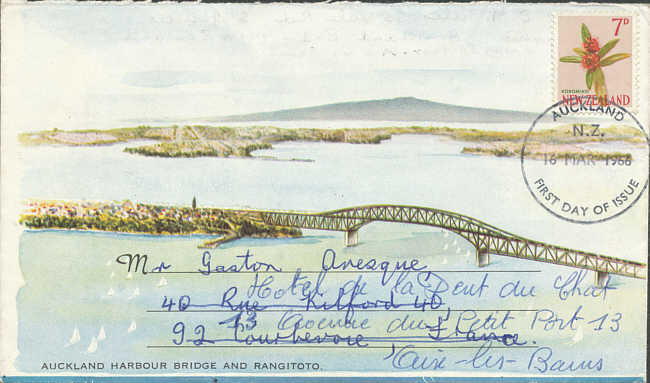 7D
KOROMIKO
NEW ZEALAND
AUCKLAND
N.Z.
16 MAR 1966
FIRST DAY OF ISSUE
Mr Gaston Aresque
Hotel de la Dent du Chat
40 Rue Kilford 40
13 Avenue du Petit Port 13
92 Courbevoie France.
Aix-les-Bains
AUCKLAND HARBOUR BRIDGE AND RANGITOTO.